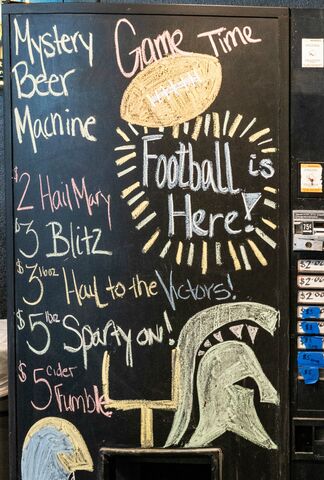 Mystery
Beer
Machine
Game Time
Football is
Here!
$2 Hail Mary
$3 Blitz
$3 16oz Hail to the Victors!
$5 16oz Sparty on!
$5 Cider Fumble
$2.00
$2.00
$2.00